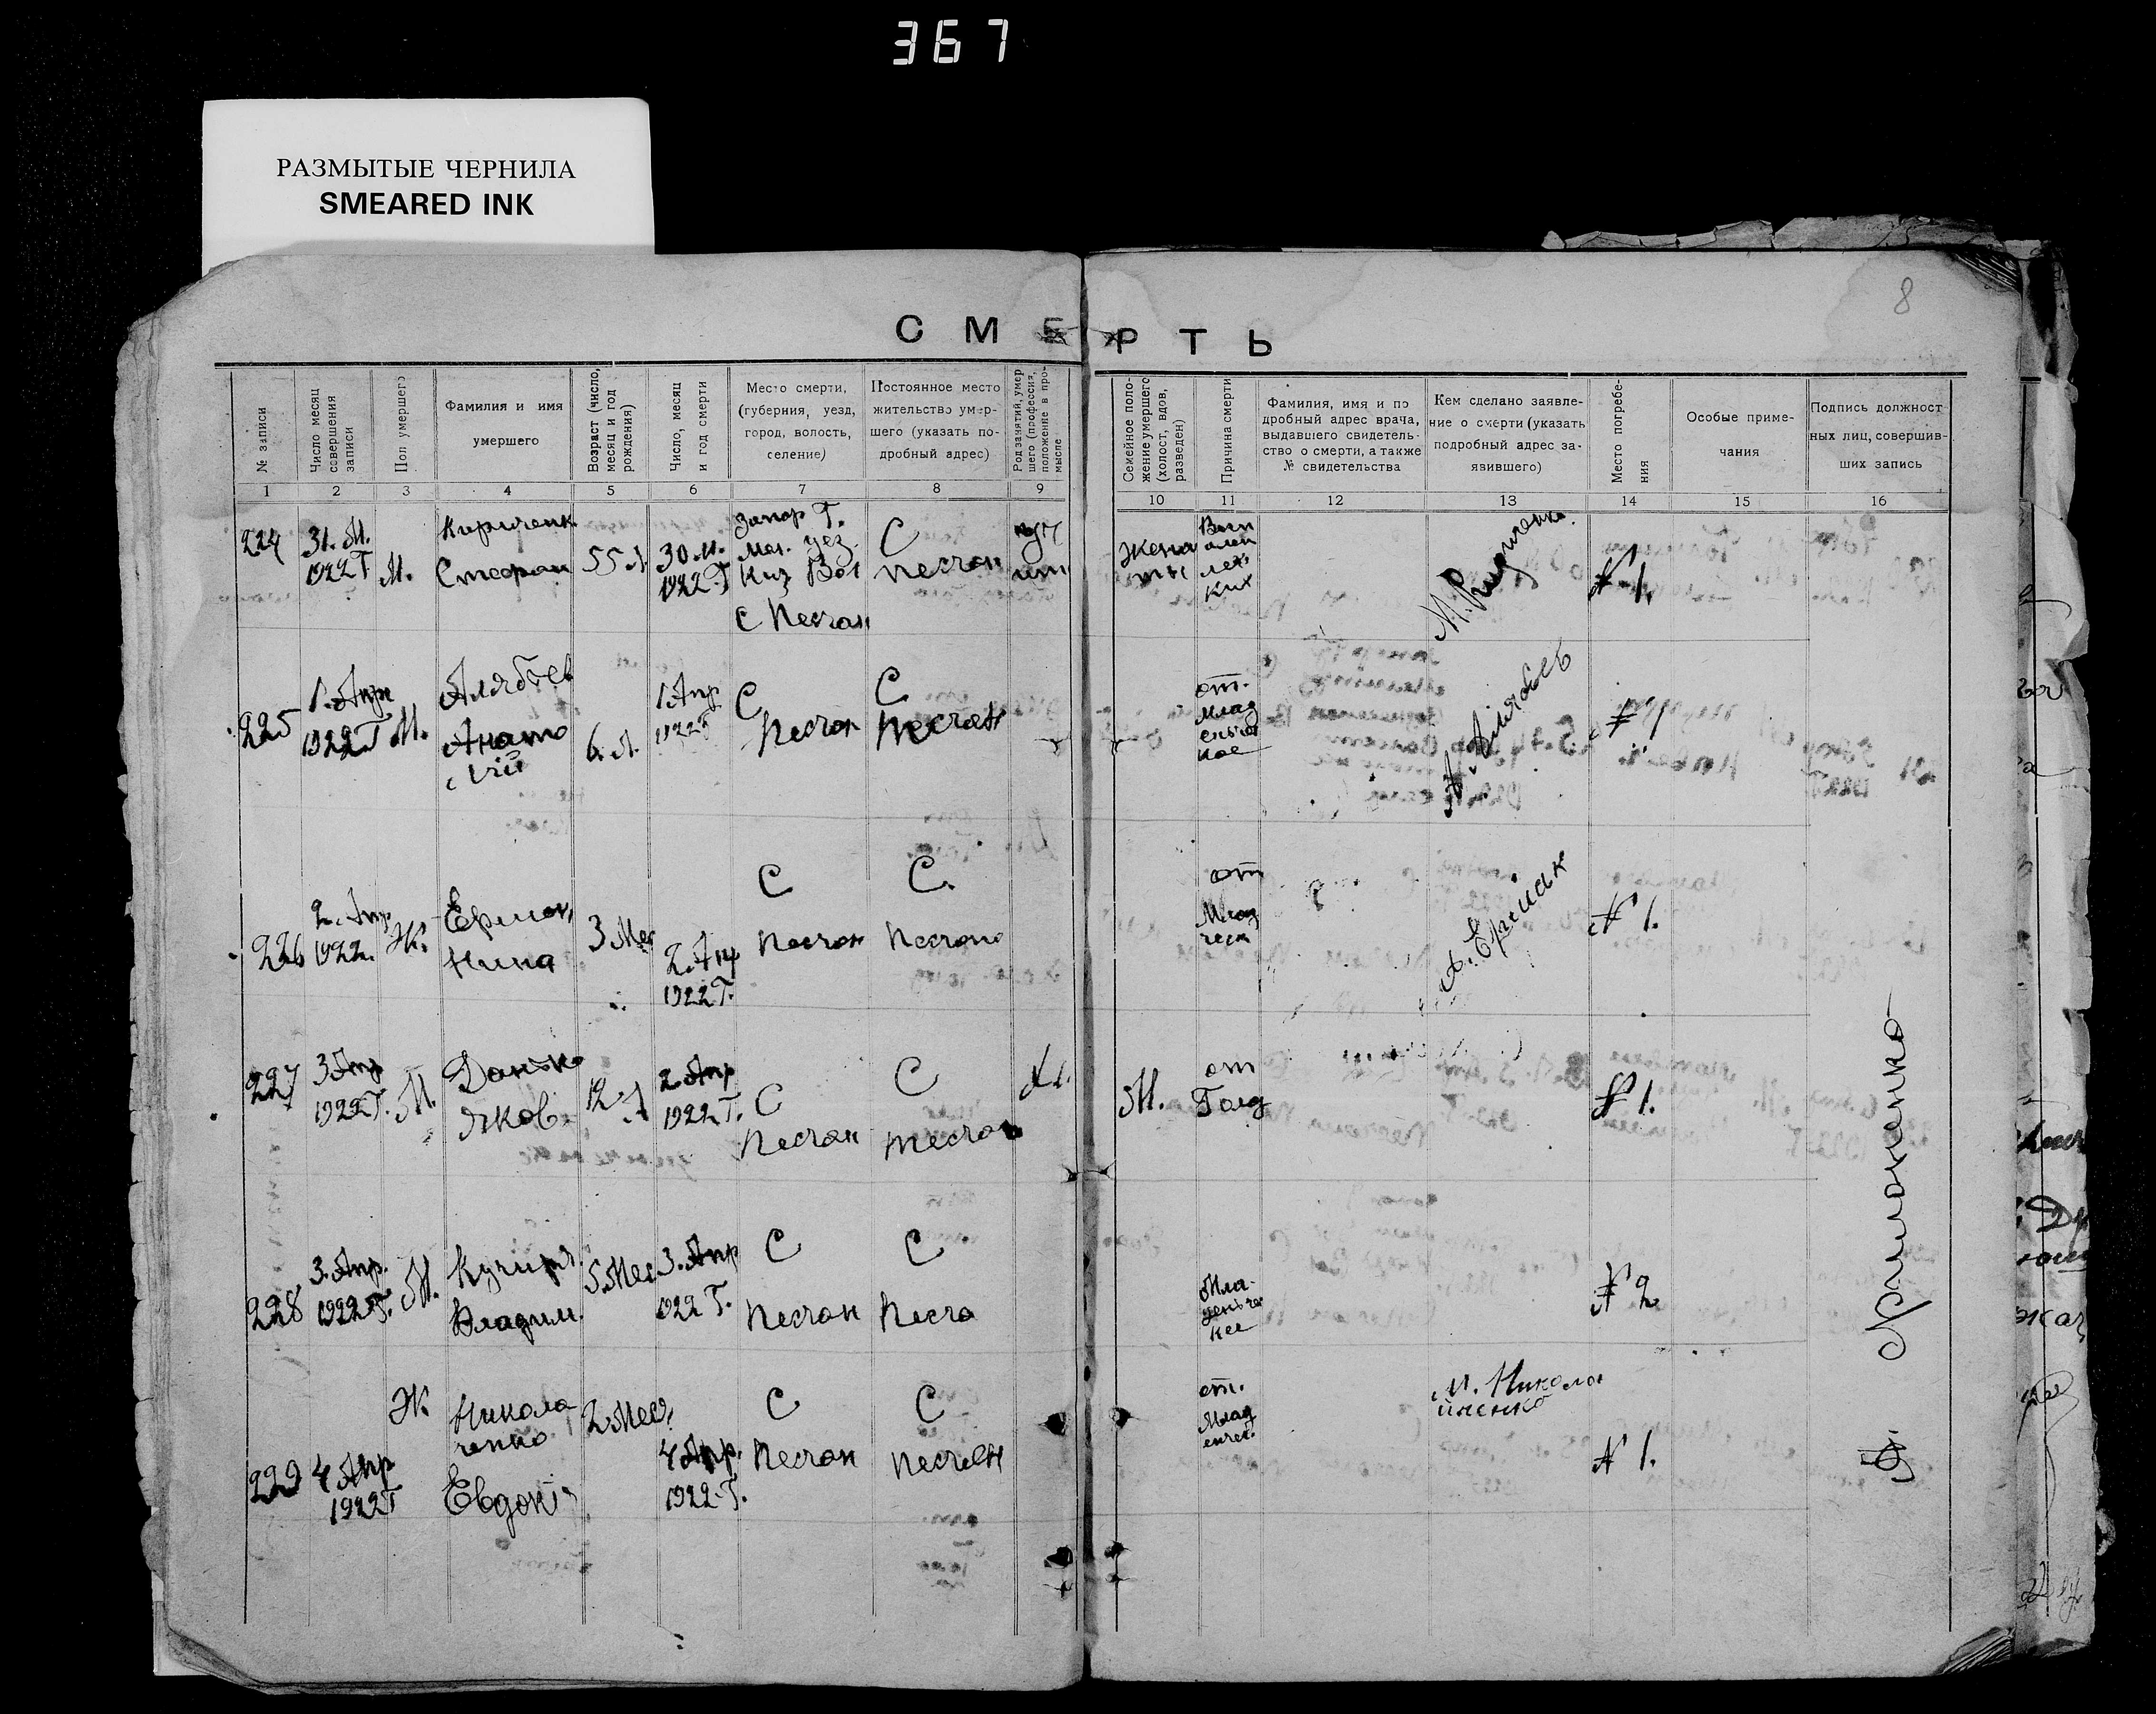 367
РАЗМЫТЫЕ ЧЕРНИЛА
SMEARED INK
8
СМЕРТЬ
№ записи
Число месяц совершения записи
Пол умершего
Фамилия и имя
умершего
Возраст (число, месяц и год рождения)
Число, месяц и год смерти
Место смерти,
(губерния, уезд,
город, волость,
селение)
Постоянное место
жительство умер-
шего (указать по-
дробный адрес)
Род занятий, умер
шего (профессия,
положение в про-
мысле
Семейное поло-
жение умершего
(холост, вдов,
разведен)
Причина смерти
Фамилия, имя и по
дробный адрес врача,
выдавшего свидетель-
ство о смерти, а также
№ свидетельства
Кем сделано заявле-
ние о смерти (указать
подробный адрес за-
явившего)
Место погребе-
ния
Особые приме-
чания
Подпись должност
ных лиц, совершив-
ших запись
1 2 3 4 5 6 7 8 9 10 11 12 13 14 15 16
224
31. М.
1922 Г
М.
Стефан
55 л
30. М.
1922. Г
Запор Г.
Мел. уез
Киз Вол
С Песчан
С
песчан
Жена
ты
М. Кириченко.
№ 1.
225
1. Апр
1922 Г
М.
Алябьев
Анато
лий
6. Л.
1 Апр
1922 Г
С
Песчан
С
Песчан
от.
Млад
енчес
кое
Алябьев
№ 1
226
2. Апр
1922.
Ж.
Ермак
Нина
3 Мес
2. Апр
1922 Г.
С
Песчан
С.
Песчано
от
Млад
ческ
Ермак
№ 1.
227
3 Апр
1922 Г.
М.
Донько
Яков.
12. Л
2. Апр
1922 Г.
С
Песчан
С
песчан
М.
от
Голд
№ 1.
228
3. Апр.
1922 Г.
М.
Владим.
5. Мес
3. Апр
1922 Г.
С
Песчан
С
Песча
Мла-
денче
кее
№ 2
229
4 Апр
1922 Г
Ж
Никола
ченко
Евдоки
2 Мес.
4 Апр.
1922. Г.
С
Песчан
С
Песчан
от.
Млад
енчес.
М. Никола
йченко
№ 1.